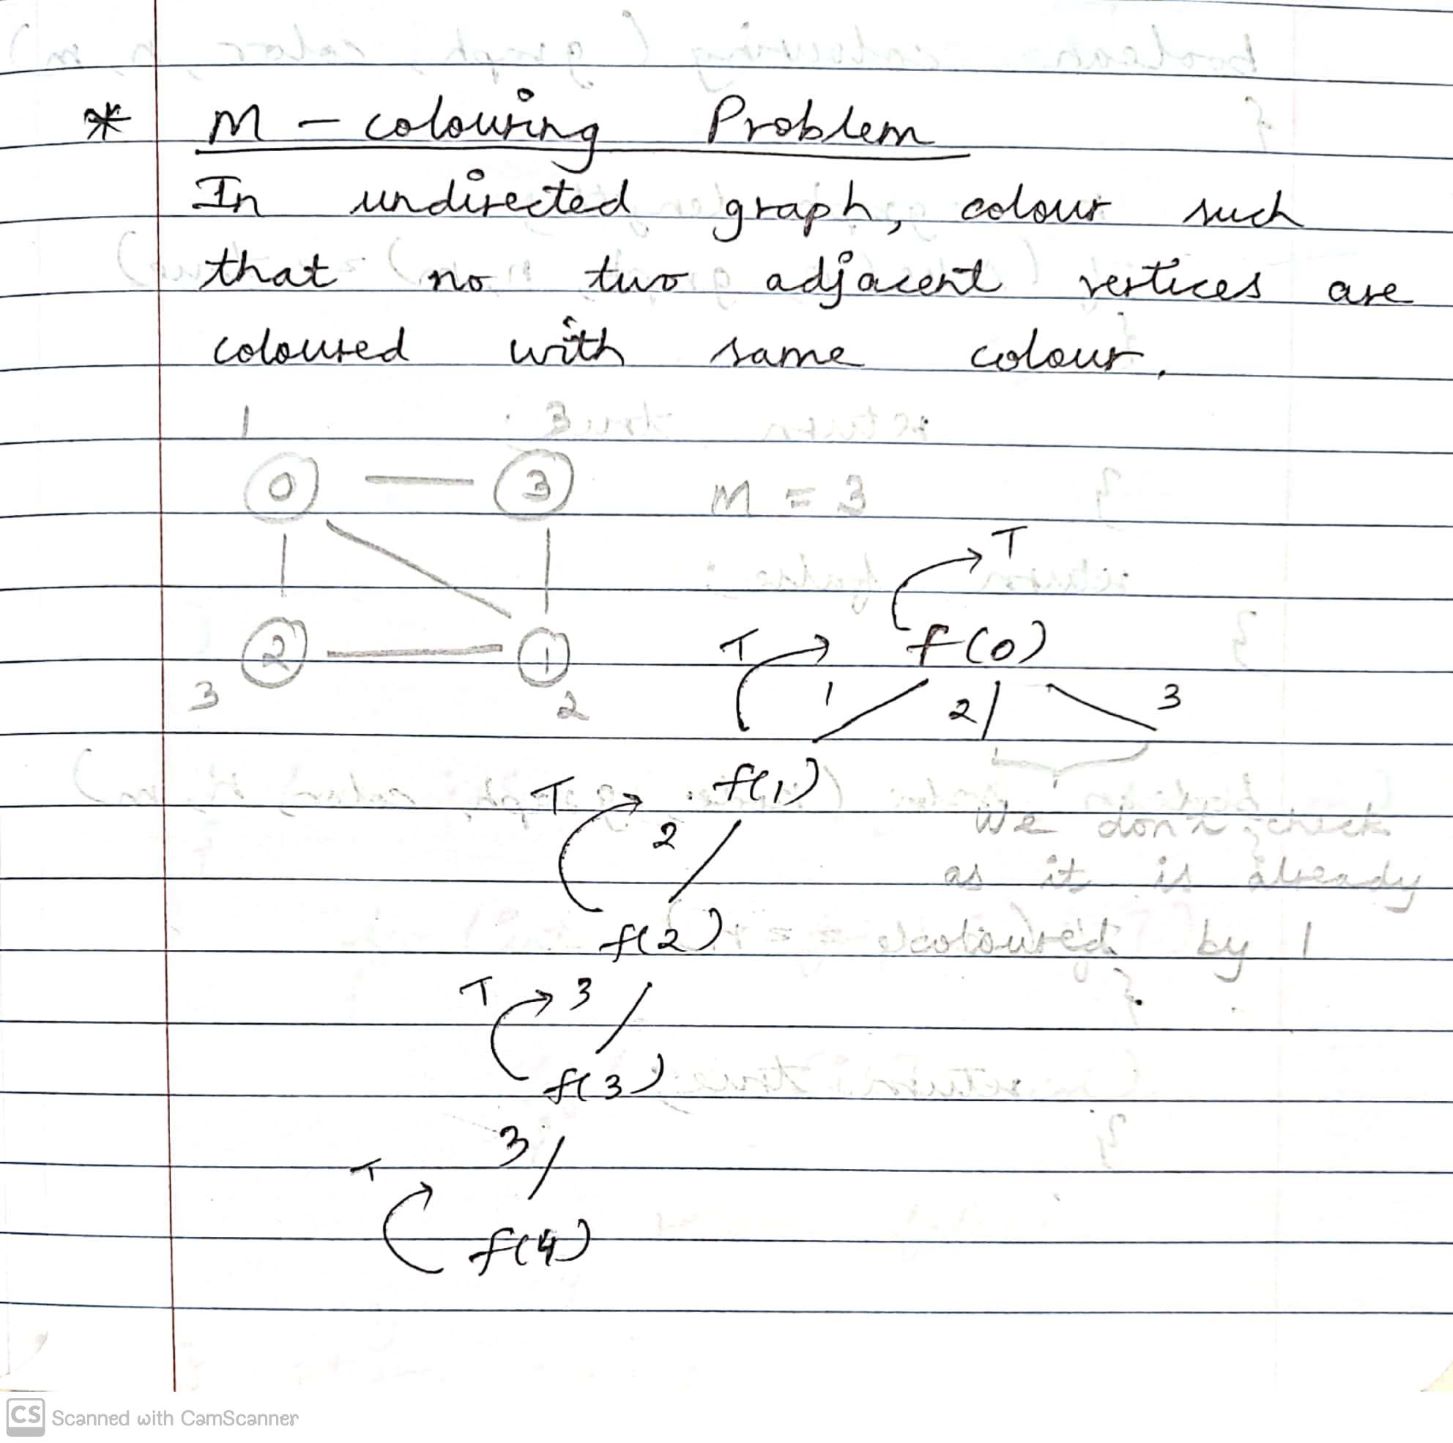 * M - colouring Problem
In undirected graph, colour such
that no two adjacent vertices are
coloured with same colour.
1 3
0 3 M = 3
T
2 1 T f(0)
3 2 1 2 3
T f(1)
2 We don't check
as it is already
f(2) coloured by 1
T 3
f(3)
3
T
f(4)
CS Scanned with CamScanner